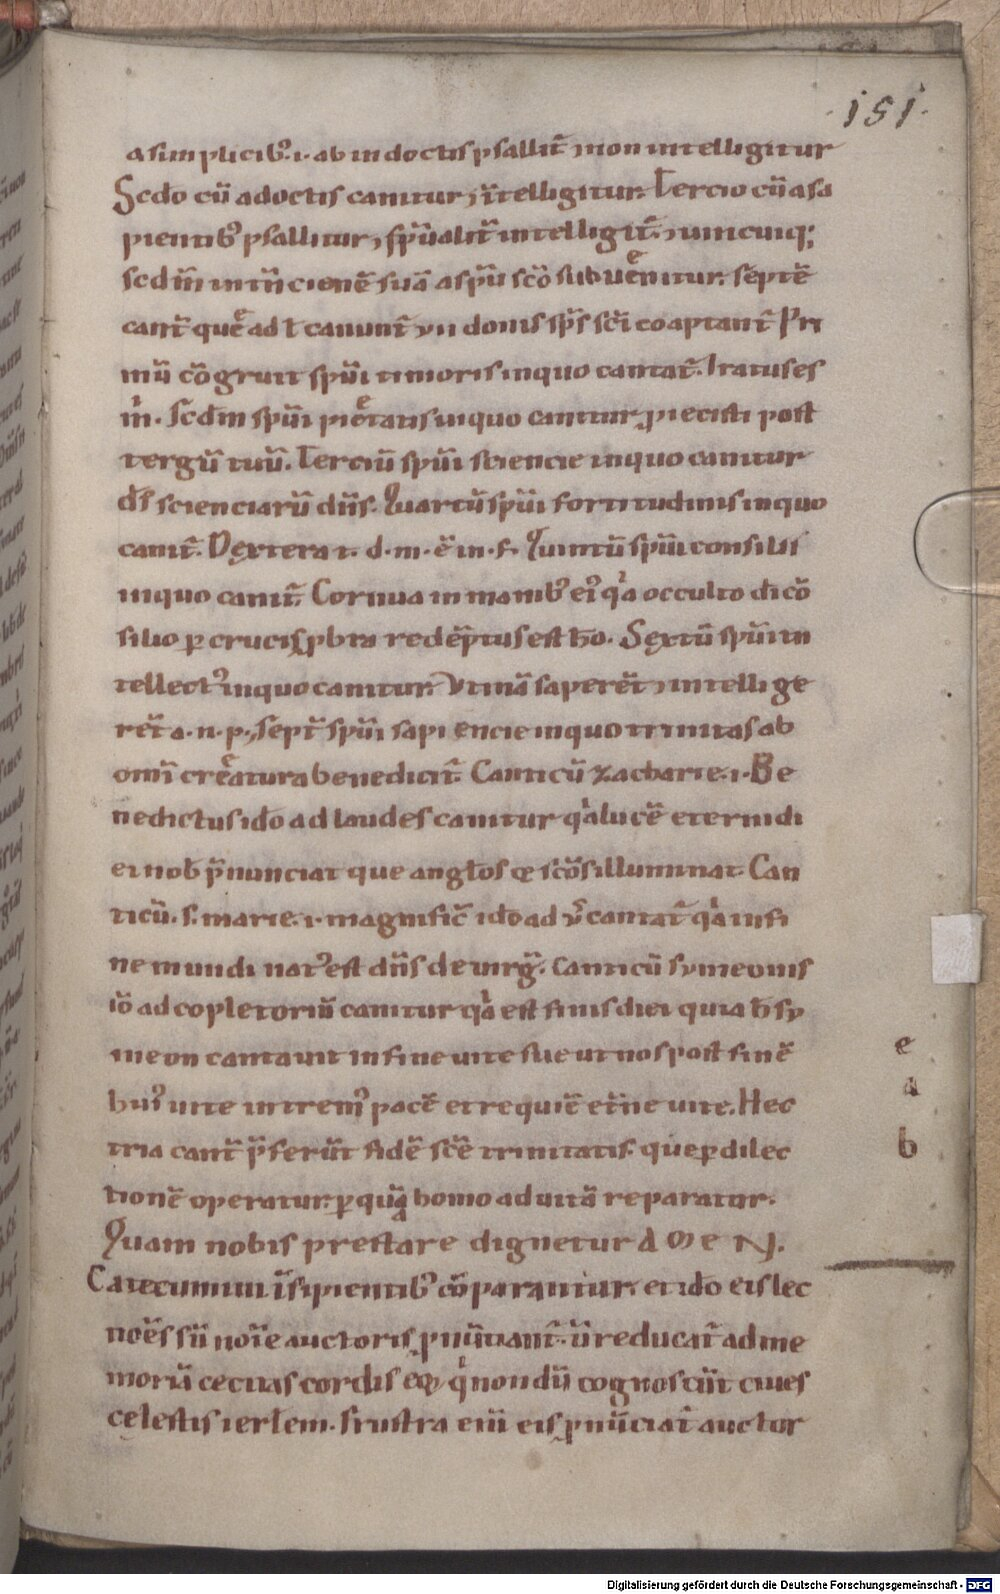 ·151·
a simplicib᷒ .i. ab indoctis psallit̃ ⁊ non intelligitur
Scdo cũ a doctis canitur, ⁊ ĩtelligitur. Tercio cũ a sa
pientib᷒ psallitur, ⁊ sp̃ualit̃ intelligit̃. ⁊ unicuiq;
scdm̃ intñcionẽ suã a sp̃u scõ subuẽnitur. septẽ
cant̃ quę ad l̃ canunt̃ vii donis sp̃s sc̃i coaptant̃ Pri
mũ cõgruit sp̃ui timoris in quo cantat̃. Iratus es
m̃. Scdm sp̃ui piętatis in quo canitur, piecisti post
tergũ tuũ. Terciũ sp̃ui sciencie in quo canitur
d̃s scienciarũ dñs. Quartũ sp̃ui fortitudinis in quo
canit̃. Dextera t. d. m. ẽ in. f. Quintũ sp̃ui consilii
in quo canit̃. Cornua in manib᷒ ei᷒ qͥa occulto di cõ
silio p̱ crucis p̱bra redẽptus est ho̅. Sextũ sp̃ui in
tellect᷒ in quo canitur. Vtinã saperẽt ⁊ intellige
rẽt a. n. p., sept̃ sp̃ui sapiencie in quo trinitas ab
omĩ creatura benedicit̃. Canticũ zacharie .i. Be
nedictus ido ad laudes canitur qͥa lucẽ eterni di
ei nob̃ p̃nunciat que angłos ⁊ scõs illuminat. Can
ticũ. s. marie .i. magnific̃ ido ad v̾ cantat̃ qͥa in fi
ne mundi nat᷒ est dñs de uirg̃. Canticũ symeonis
iõ ad copletoriũ canitur qͥa est finis diei quia h̃ sy
meon cantauit in fine uite sue ut nos post finẽ
hui᷒ uite intrem᷒ pacẽ et requiẽ et̃ne uite. Hec
tria cant̃ p̃ferũt fidẽ scẽ trinitatis. que p̱ dilec
tionẽ operatur. p̱ quã homo ad uitã reparatur.
Quam nobis prestare dignetur AMeN.
Catecumini ĩsipientib᷒ cõparantur. et ido eis lec
noẽs sũ noĩe auctoris pnũtiant̃. ũ reducat̃ ad me
moriũ cecitas cordis eoꝝ qͥ nondũ cognoscũt ciues
celestis ierłem. Frustra eni eis pnũciat̃ auctor
e
a
b
Digitalisierung gefördert durch die Deutsche Forschungsgemeinschaft - DFG